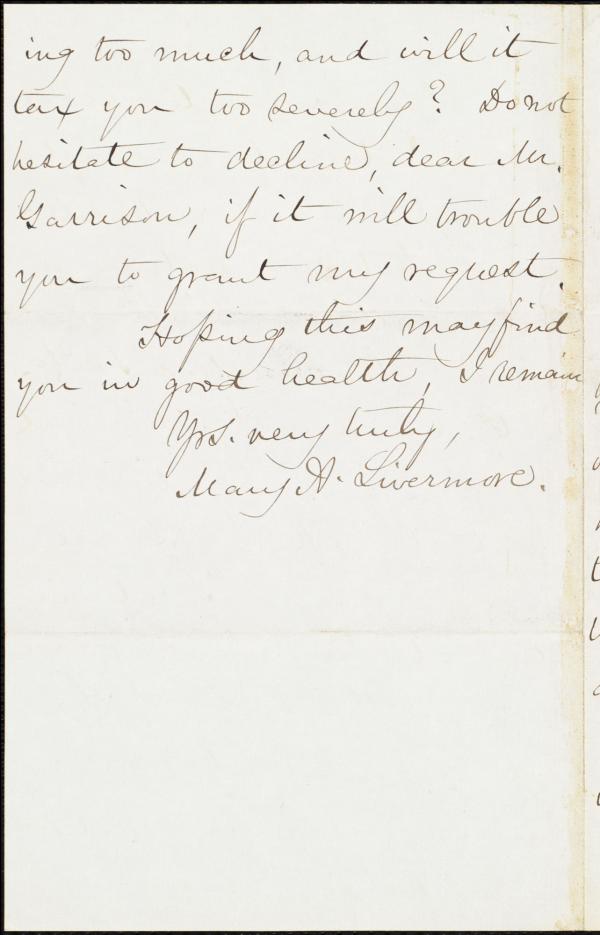 ing too much, and will it
tax you too severely? Do not
hesitate to decline, dear Mr.
Garrison, if it will trouble
you to grant my request.
Hoping this may find
you in good health, I remain
Yrs. very truly,
Mary A. Livermore.